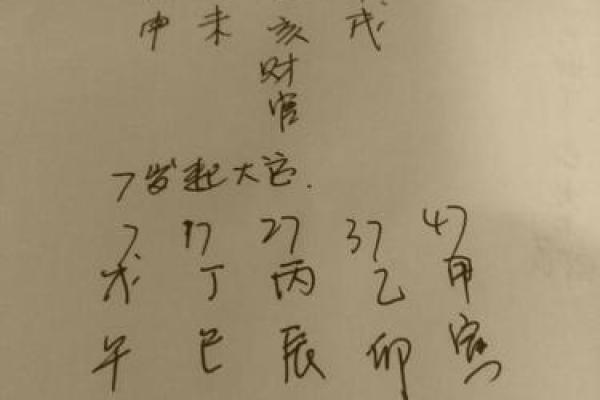 申 未 亥 戌
财
官
7岁起大运.
7 17 27 37 47
戊 丁 丙 乙 甲
午 巳 辰 卯 寅